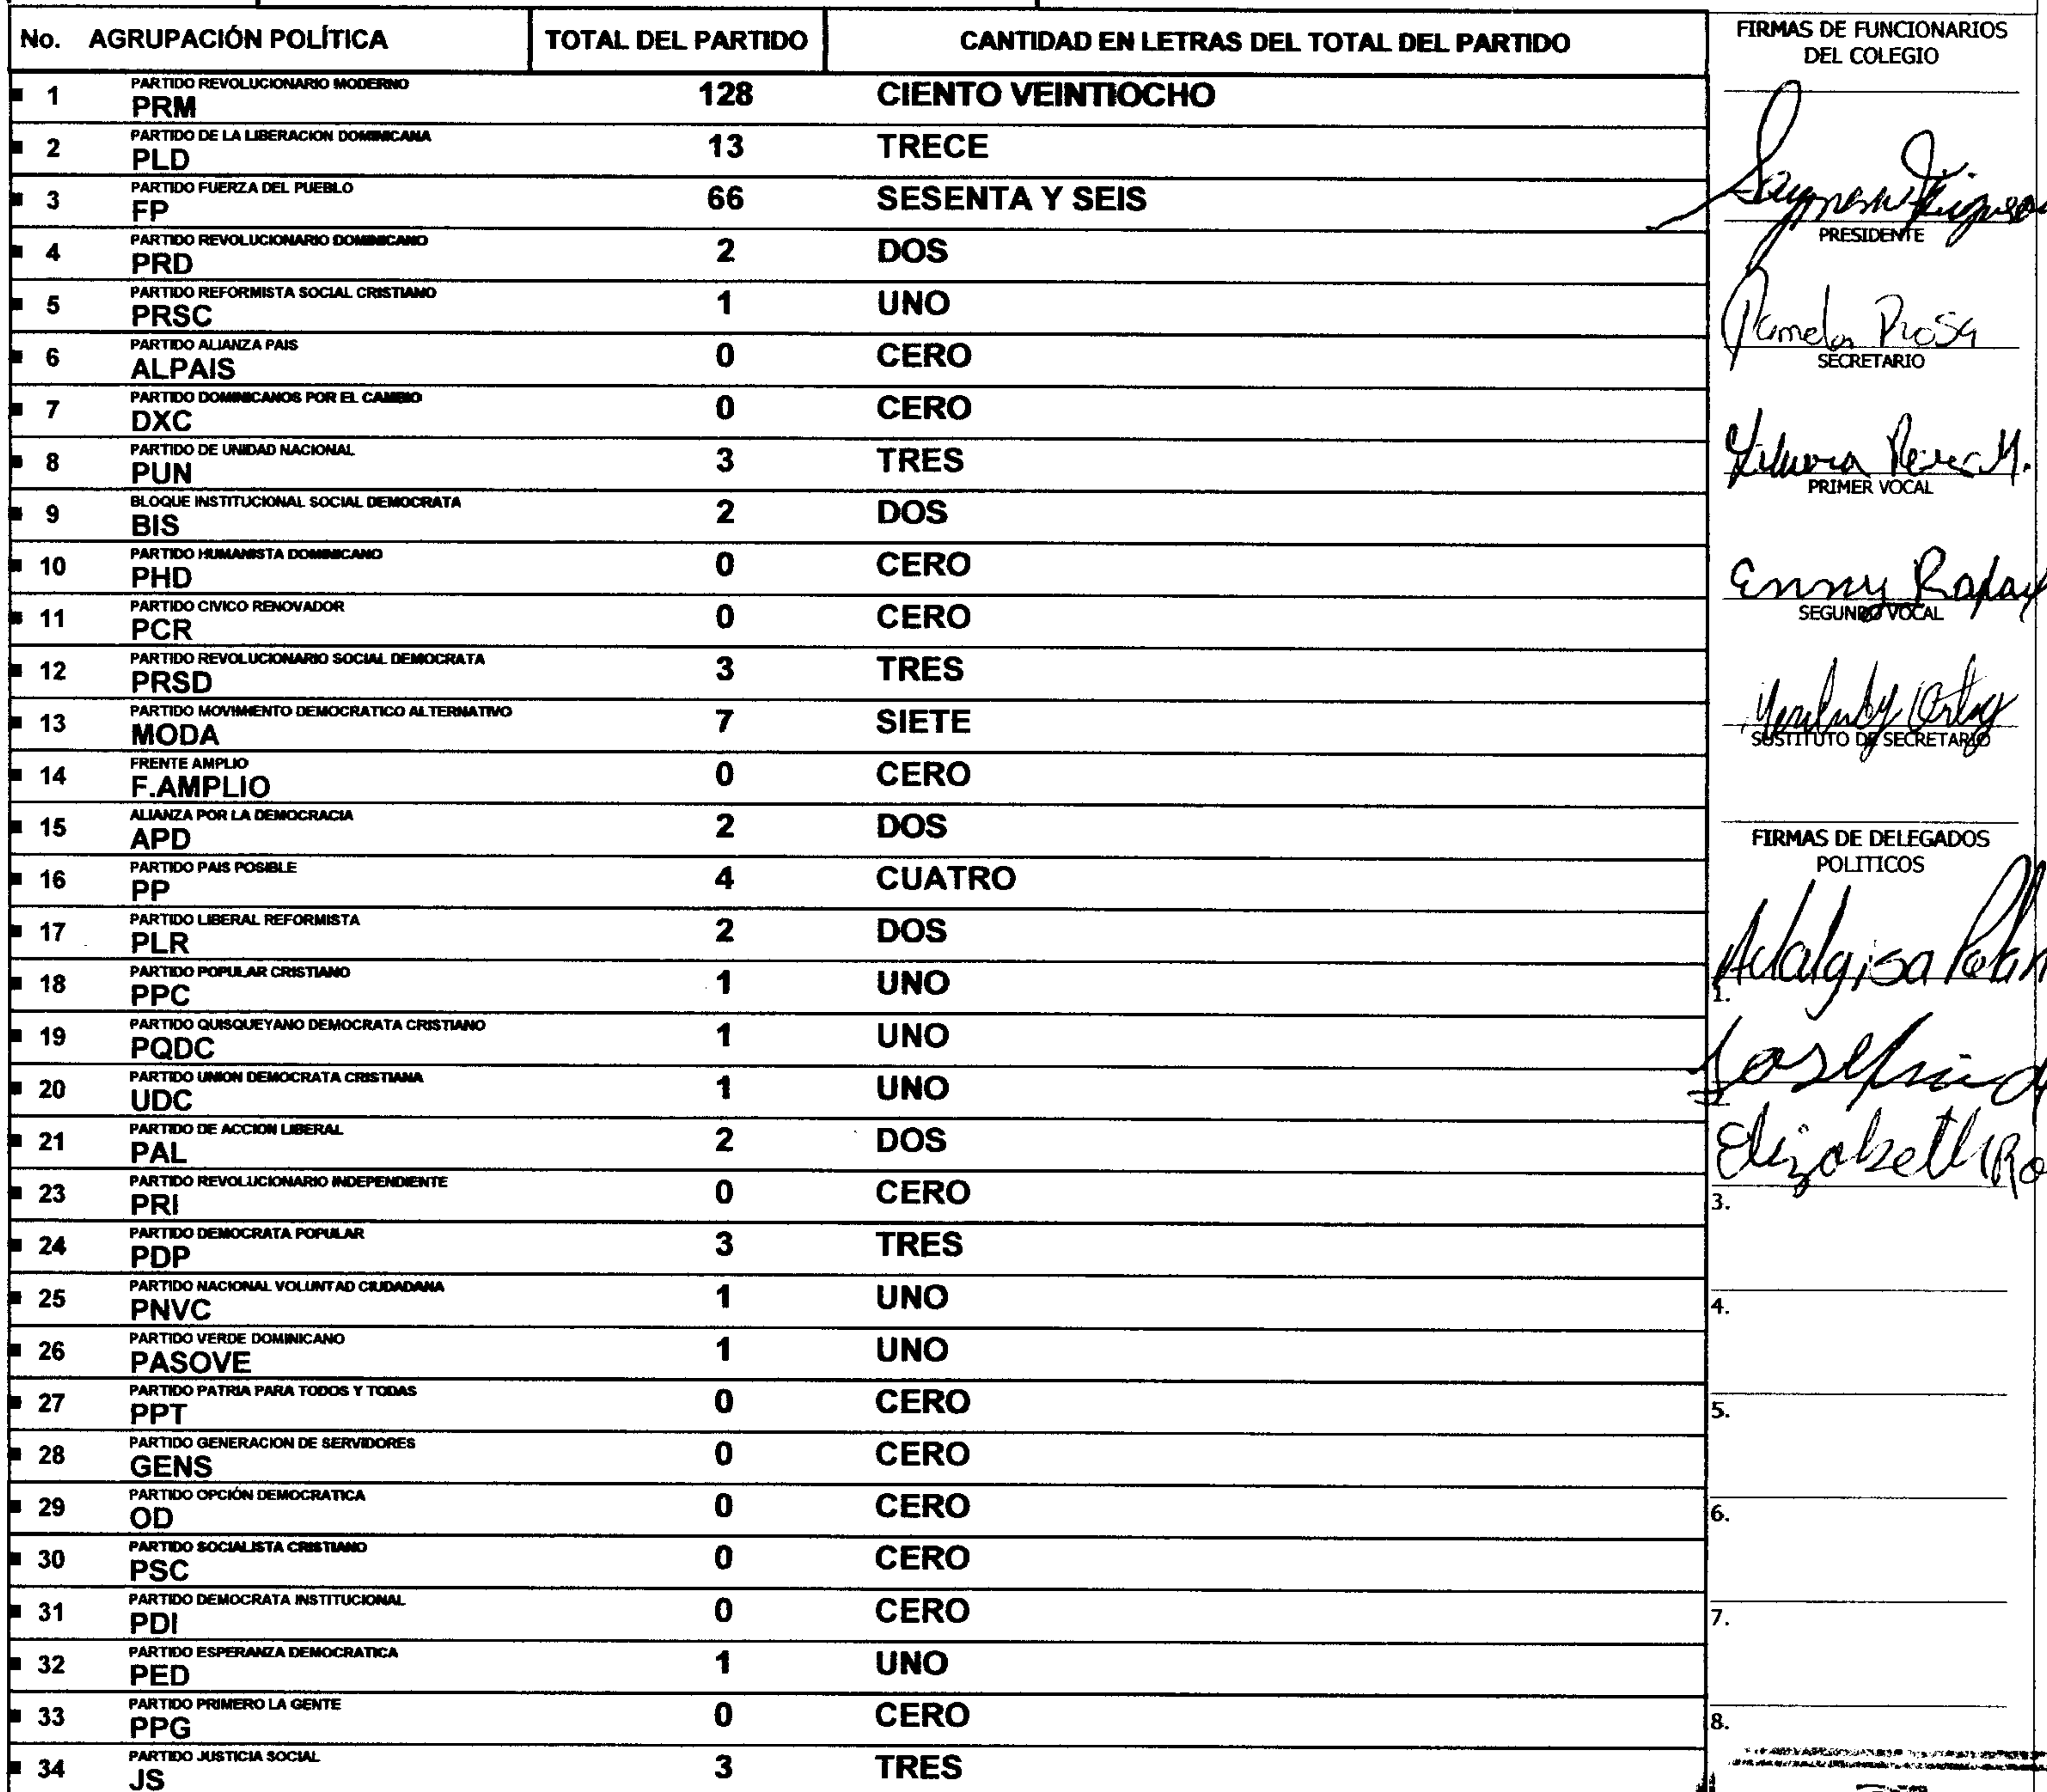 No. AGRUPACIÓN POLÍTICA TOTAL DEL PARTIDO CANTIDAD EN LETRAS DEL TOTAL DEL PARTIDO
1 PARTIDO REVOLUCIONARIO MODERNO
PRM 128 CIENTO VEINTIOCHO
2 PARTIDO DE LA LIBERACION DOMINICANA
PLD 13 TRECE
3 PARTIDO FUERZA DEL PUEBLO
FP 66 SESENTA Y SEIS
4 PARTIDO REVOLUCIONARIO DOMINICANO
PRD 2 DOS
5 PARTIDO REFORMISTA SOCIAL CRISTIANO
PRSC 1 UNO
6 PARTIDO ALIANZA PAIS
ALPAIS 0 CERO
7 PARTIDO DOMINICANOS POR EL CAMBIO
DXC 0 CERO
8 PARTIDO DE UNIDAD NACIONAL
PUN 3 TRES
9 BLOQUE INSTITUCIONAL SOCIAL DEMOCRATA
BIS 2 DOS
10 PARTIDO HUMANISTA DOMINICANO
PHD 0 CERO
11 PARTIDO CIVICO RENOVADOR
PCR 0 CERO
12 PARTIDO REVOLUCIONARIO SOCIAL DEMOCRATA
PRSD 3 TRES
13 PARTIDO MOVIMIENTO DEMOCRATICO ALTERNATIVO
MODA 7 SIETE
14 FRENTE AMPLIO
F.AMPLIO 0 CERO
15 ALIANZA POR LA DEMOCRACIA
APD 2 DOS
16 PARTIDO PAIS POSIBLE
PP 4 CUATRO
17 PARTIDO LIBERAL REFORMISTA
PLR 2 DOS
18 PARTIDO POPULAR CRISTIANO
PPC 1 UNO
19 PARTIDO QUISQUEYANO DEMOCRATA CRISTIANO
PQDC 1 UNO
20 PARTIDO UNION DEMOCRATA CRISTIANA
UDC 1 UNO
21 PARTIDO DE ACCION LIBERAL
PAL 2 DOS
23 PARTIDO REVOLUCIONARIO INDEPENDIENTE
PRI 0 CERO
24 PARTIDO DEMOCRATA POPULAR
PDP 3 TRES
25 PARTIDO NACIONAL VOLUNTAD CIUDADANA
PNVC 1 UNO
26 PARTIDO VERDE DOMINICANO
PASOVE 1 UNO
27 PARTIDO PATRIA PARA TODOS Y TODAS
PPT 0 CERO
28 PARTIDO GENERACION DE SERVIDORES
GENS 0 CERO
29 PARTIDO OPCIÓN DEMOCRATICA
OD 0 CERO
30 PARTIDO SOCIALISTA CRISTIANO
PSC 0 CERO
31 PARTIDO DEMOCRATA INSTITUCIONAL
PDI 0 CERO
32 PARTIDO ESPERANZA DEMOCRATICA
PED 1 UNO
33 PARTIDO PRIMERO LA GENTE
PPG 0 CERO
34 PARTIDO JUSTICIA SOCIAL
JS 3 TRES
FIRMAS DE FUNCIONARIOS
DEL COLEGIO
PRESIDENTE
Pamela Rosa
SECRETARIO
PRIMER VOCAL
Enny
SEGUNDO VOCAL
SUSTITUTO DE SECRETARIO
FIRMAS DE DELEGADOS
POLITICOS
Adalgisa
1.
Josefina
2.
Elizabeth
3.
4.
5.
6.
7.
8.